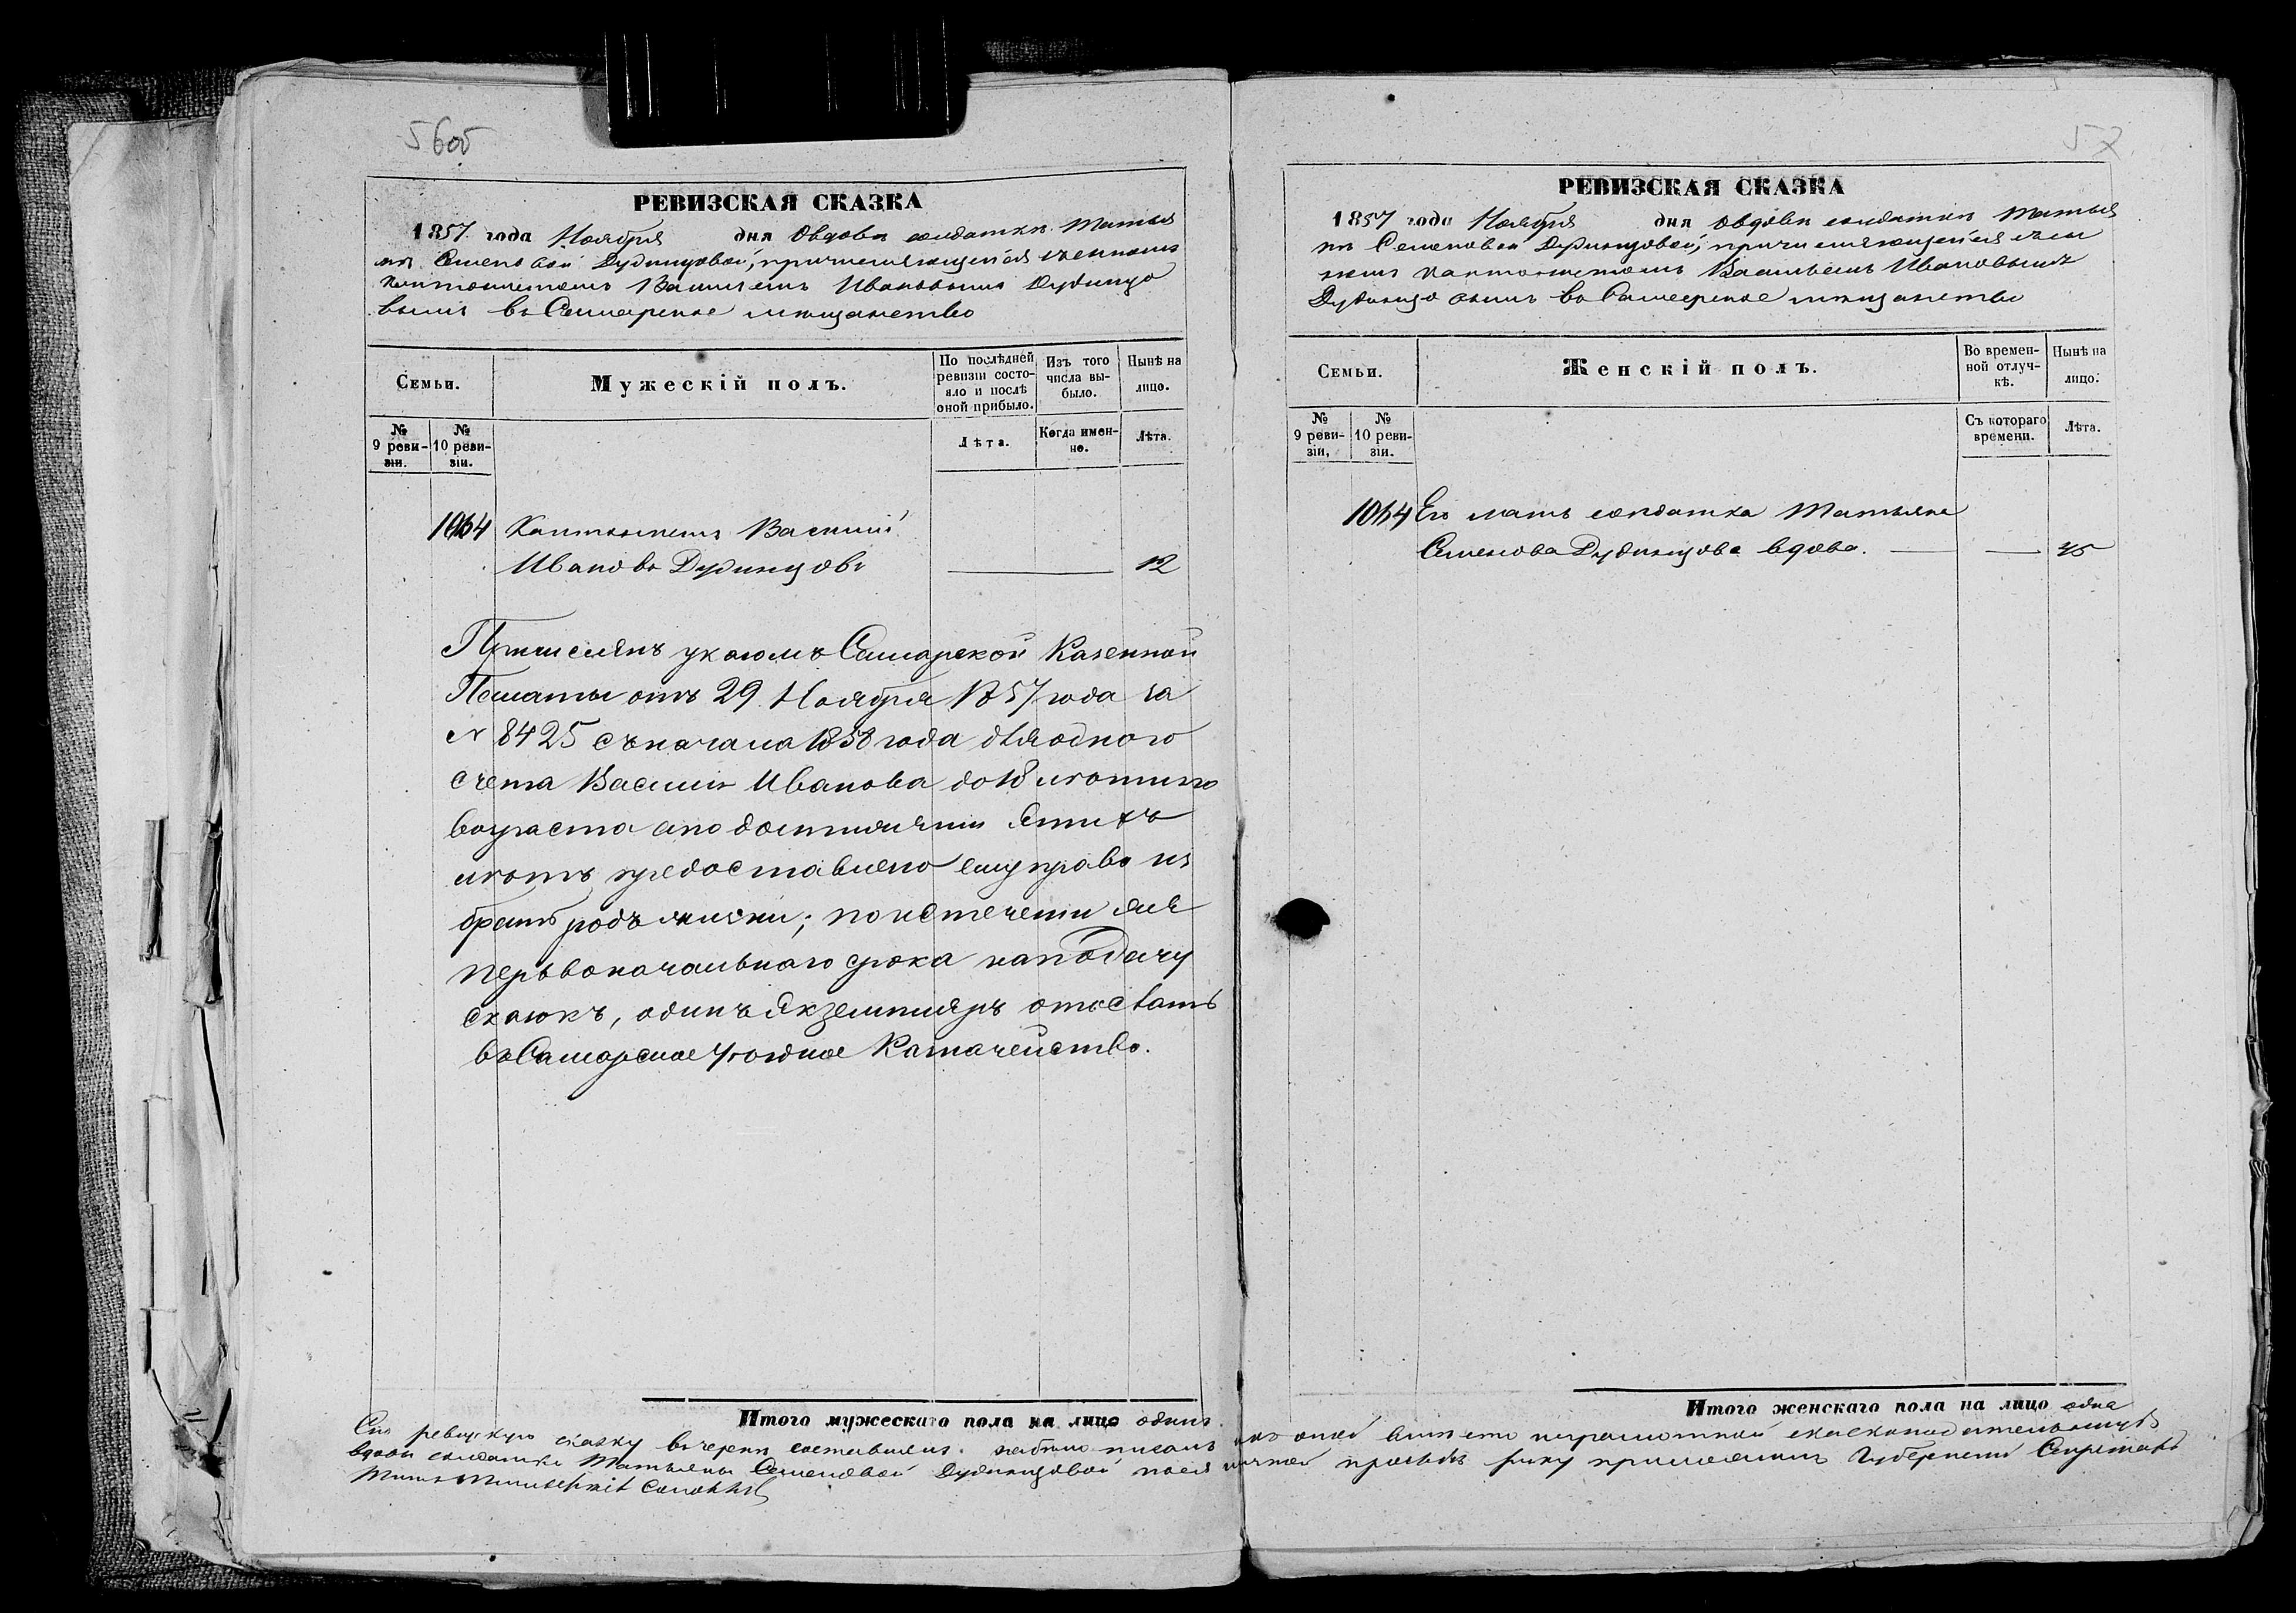 56об
РЕВИЗСКАЯ СКАЗКА
1857 года Ноября дня Овдовѣ солдаткѣ Татья
нѣ Семеновой Дудинцовой, причисляющейся съ сыномъ
кантонистомъ Васильемъ Ивановымъ Дудинцо
вымъ въ Самарское мѣщанство
Семьи.
Мужескій полъ.
По послѣдней ревизіи состояло и послѣ оной прибыло.
Изъ того числа выбыло.
Нынѣ на лицо.
№ 9 ревизіи.
№ 10 ревизіи.
Лѣта.
Когда именно.
Лѣта.
1064 Кантонистъ Василий
Ивановъ Дудинцовъ 12
Причисленъ указомъ Самарской Казенной
Палаты отъ 29 Ноября 1857 года за
N 8425 съ начала 1858 года для одного
счета Василия Иванова до 18 лѣтняго
возраста а по достижении этихъ
лѣтъ предоставлено ему право из
брать родъ жизни; по истечении же
перьвоначальнаго срока на подачу
сказокъ, одинъ экземпляръ отослать
въ Самарское Уѣздное Казначейство.
Итого мужескаго пола на лицо одинъ
57
РЕВИЗСКАЯ СКАЗКА
1857 года Ноября дня Овдовѣ солдаткѣ Татья
нѣ Семеновой Дудинцовой, причисляющейся съ сы
номъ кантонистомъ Васильемъ Ивановымъ
Дудинцовымъ въ Самарское мѣщанство
Семьи.
Женскій полъ.
Во временной отлучкѣ.
Нынѣ на лицо.
№ 9 ревизіи.
№ 10 ревизіи.
Съ котораго времени.
Лѣта.
1064 Его мать солдатка Татьяна
Семенова Дудинцова вдова. 45
Итого женскаго пола на лицо одна
Сію ревизскую сказку
вдовы солдатки Татьяны Семеновой Дудинцовой руку приложилъ Губернскій Секретарь